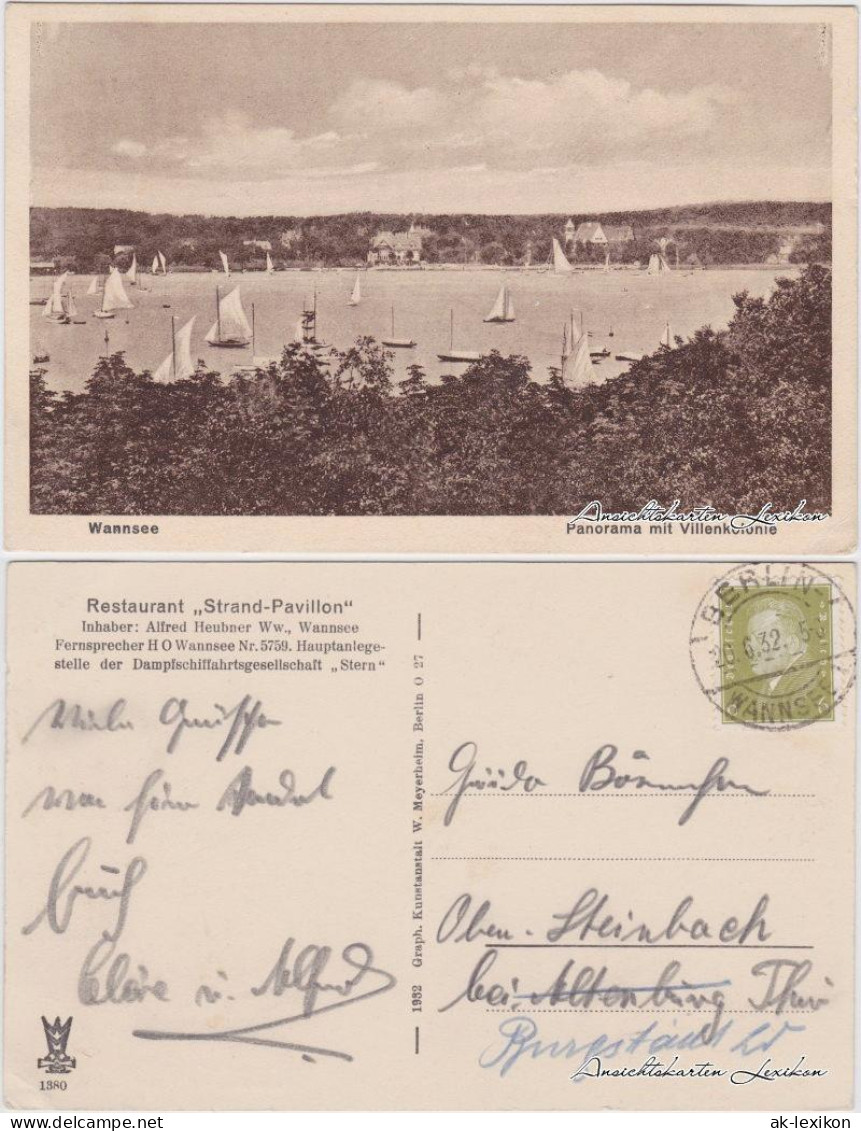 Wannsee
Panorama mit Villenkolonie
Ansichtskarten Lexikon
Restaurant „Strand-Pavillon“
Inhaber: Alfred Heubner Ww., Wannsee
Fernsprecher H O Wannsee Nr. 5759. Hauptanlege-
stelle der Dampfschiffahrtsgesellschaft „Stern“
Viele Grüße
von
Euch
Cläre u. Alfred
1380
1932 Graph. Kunstanstalt W. Meyerheim, Berlin O 27
BERLIN-
6.32.
WANNSEE
Guido
Ober-Steinbach
bei Altenburg Thür
Burgstädt
Ansichtskarten Lexikon
ak-lexikon